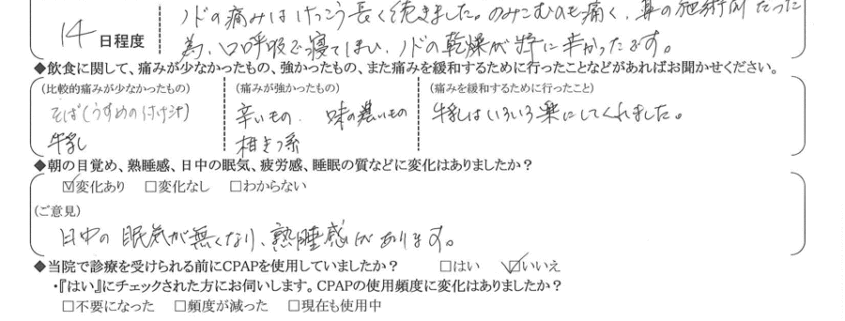 ノドの痛みはけっこう長く続きました。のみこむのも痛く、鼻の施術前だった
14日程度
為、口呼吸で寝てしまい、ノドの乾燥が特に辛かったです。
◆飲食に関して、痛みが少なかったもの、強かったもの、また痛みを緩和するために行ったことなどがあればお聞かせください。
(比較的痛みが少なかったもの) (痛みが強かったもの) (痛みを緩和するために行ったこと)
そば(うすめの付け汁) 辛いもの、味の濃いもの 牛乳はいろいろ楽にしてくれました。
牛乳 柑きつ系
◆朝の目覚め、熟睡感、日中の眠気、疲労感、睡眠の質などに変化はありましたか?
☑変化あり □変化なし □わからない
(ご意見)
日中の眠気が無くなり、熟睡感があります。
◆当院で診療を受けられる前にCPAPを使用していましたか? □はい ☑いいえ
・『はい』にチェックされた方にお伺いします。CPAPの使用頻度に変化はありましたか?
□不要になった □頻度が減った □現在も使用中